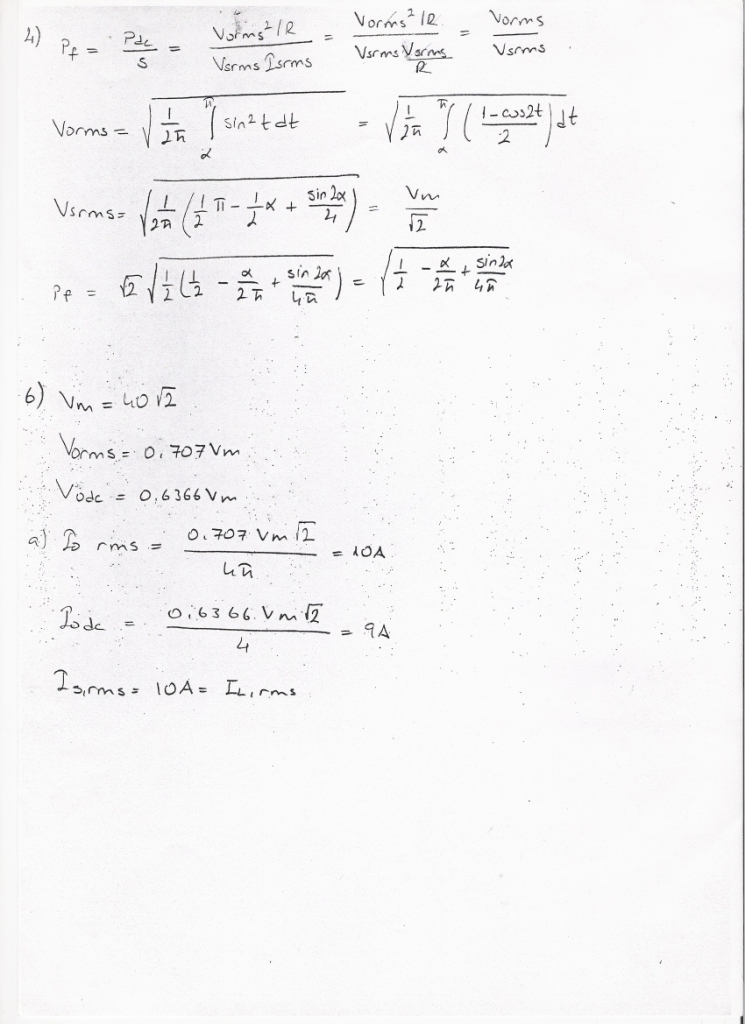 4) Pf = Pdc/S = Vorms²/R / Vsrms Isrms = Vorms²/R / Vsrms Vsrms/R = Vorms / Vsrms
Vorms = √(1/2π ∫α^π sin²t dt) = √(1/2π ∫α^π (1-cos2t / 2) dt)
Vsrms = √(1/2π (1/2 π - 1/2 α + sin2α/4)) = Vm/√2
Pf = √2 √(1/2 (1/2 - α/2π + sin2α/4π)) = √(1/2 - α/2π + sin2α/4π)
6) Vm = 40√2
Vorms = 0,707 Vm
Vodc = 0,6366 Vm
a) Io rms = 0.707 Vm √2 / 4π = 10A
Iodc = 0,6366 Vm √2 / 4 = 9A
Is,rms = 10A = IL,rms